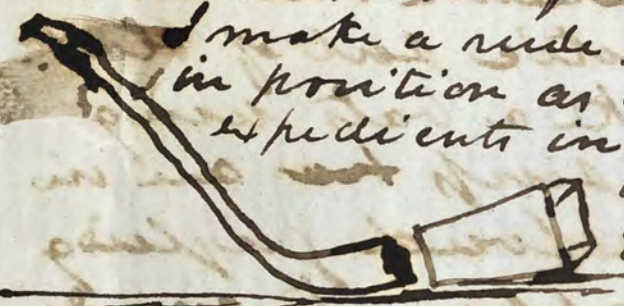 I make a rude
in position as
expedients in